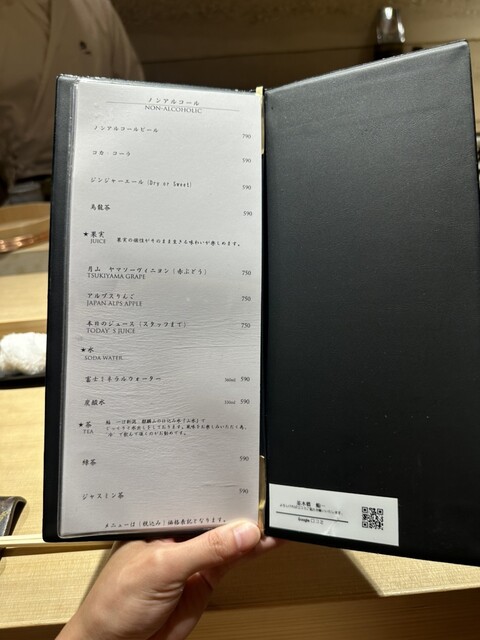 ノンアルコール
NON-ALCOHOLIC
ノンアルコールビール 790
コカ・コーラ 590
ジンジャーエール (Dry or Sweet) 590
烏龍茶 590
★果実
JUICE 果実の個性がそのまま生きる味わいが楽しめます。
月山 ヤマソーヴィニヨン(赤ぶどう) 750
TSUKIYAMA GRAPE
アルプスりんご 750
JAPAN ALPS APPLE
本日のジュース(スタッフまで) 750
TODAY'S JUICE
★水
SODA WATER
富士ミネラルウォーター 590
炭酸水 590
★茶
TEA
緑茶 590
ジャスミン茶 590
メニューは(税込み)価格表記となります。
Google 口コミ